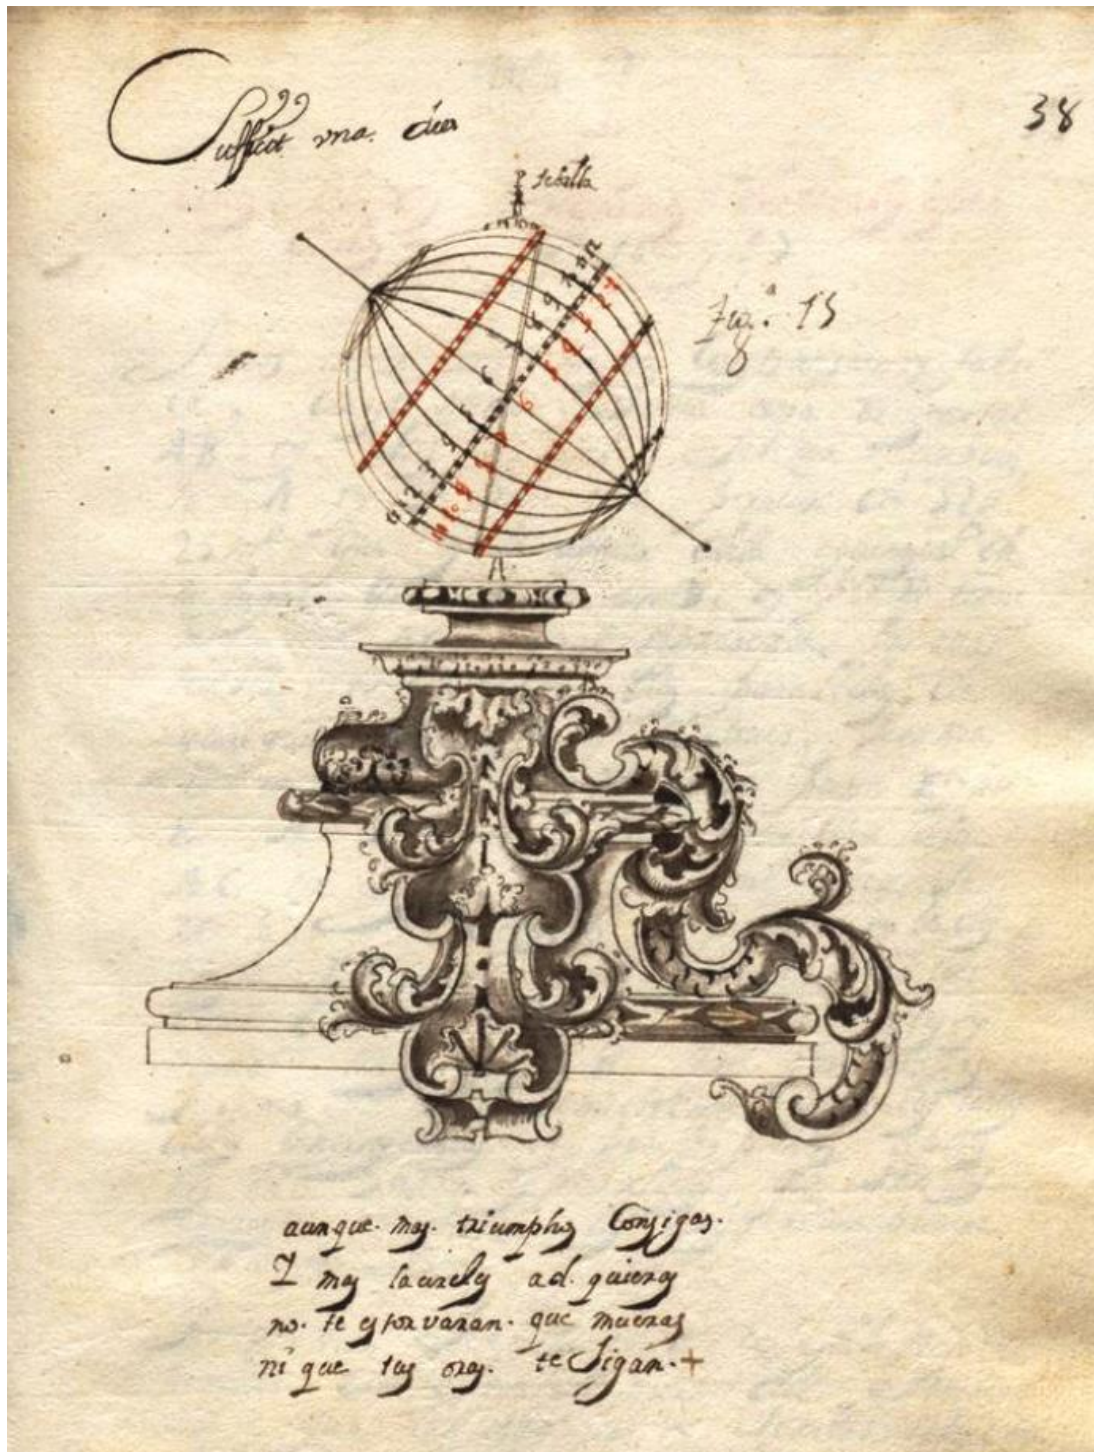 38
Sufficit una dies
Fig.ᵃ 15
aunque. mas. triumphos Consigas.
Y mas laureles ad. quieras
no. te estorvaran. que mueras
ni que tus oras. te Sigan. +